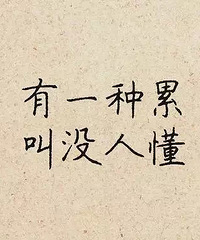 有一种累
叫没人懂